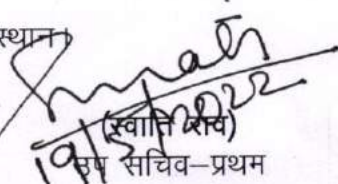 स्थान।
Swati
19/5/2022
(स्वाति राव)
उप सचिव–प्रथम